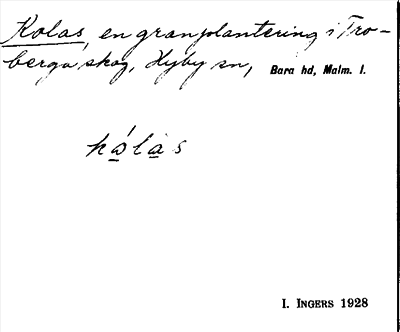 Kolas, en granplantering i Tro-
berga skog, Hyby sn, Bara hd, Malm. l.
kǻla̱s
I. INGERS 1928